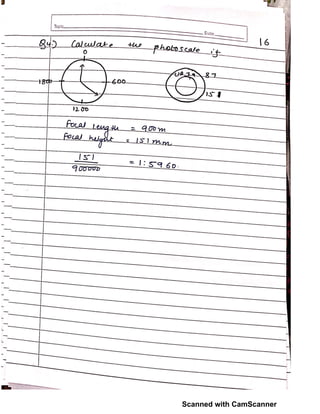 Topic
Date
16
Q4.) Calculate the photoscale if
0
1800
600
1200
87
151
Focal length = 900 m
Focal height = 151 mm
151
900000
= 1:5960
Scanned with CamScanner